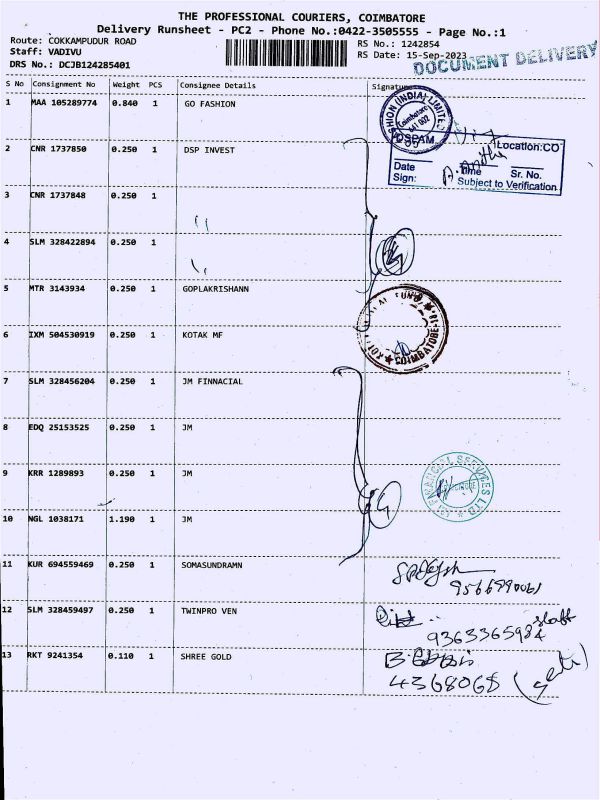 THE PROFESSIONAL COURIERS, COIMBATORE
Delivery Runsheet - PC2 - Phone No.:0422-3505555 - Page No.:1
Route: COKKAMPUDUR ROAD
Staff: VADIVU
DRS No.: DCJB124285401
RS No.: 1242854
RS Date: 15-Sep-2023
DOCUMENT DELIVERY
S No Consignment No Weight PCS Consignee Details Signature
1 MAA 105289774 0.840 1 GO FASHION
FASHION (INDIA) LIMITED
Coimbatore
641 002
Location:CO
Date Time Sr. No.
Sign: Subject to Verification
2 CNR 1737850 0.250 1 DSP INVEST
3 CNR 1737848 0.250 1 ''
4 SLM 328422894 0.250 1 ''
5 MTR 3143934 0.250 1 GOPLAKRISHANN
6 IXM 504530919 0.250 1 KOTAK MF
COIMBATORE-18
7 SLM 328456204 0.250 1 JM FINNACIAL
8 EDQ 25153525 0.250 1 JM
9 KRR 1289893 0.250 1 JM
FINANCIAL SERVICES LTD
10 NGL 1038171 1.190 1 JM
11 KUR 694559469 0.250 1 SOMASUNDRAMN
9566990061
12 SLM 328459497 0.250 1 TWINPRO VEN
staff
9363365984
13 RKT 9241354 0.110 1 SHREE GOLD
4368068